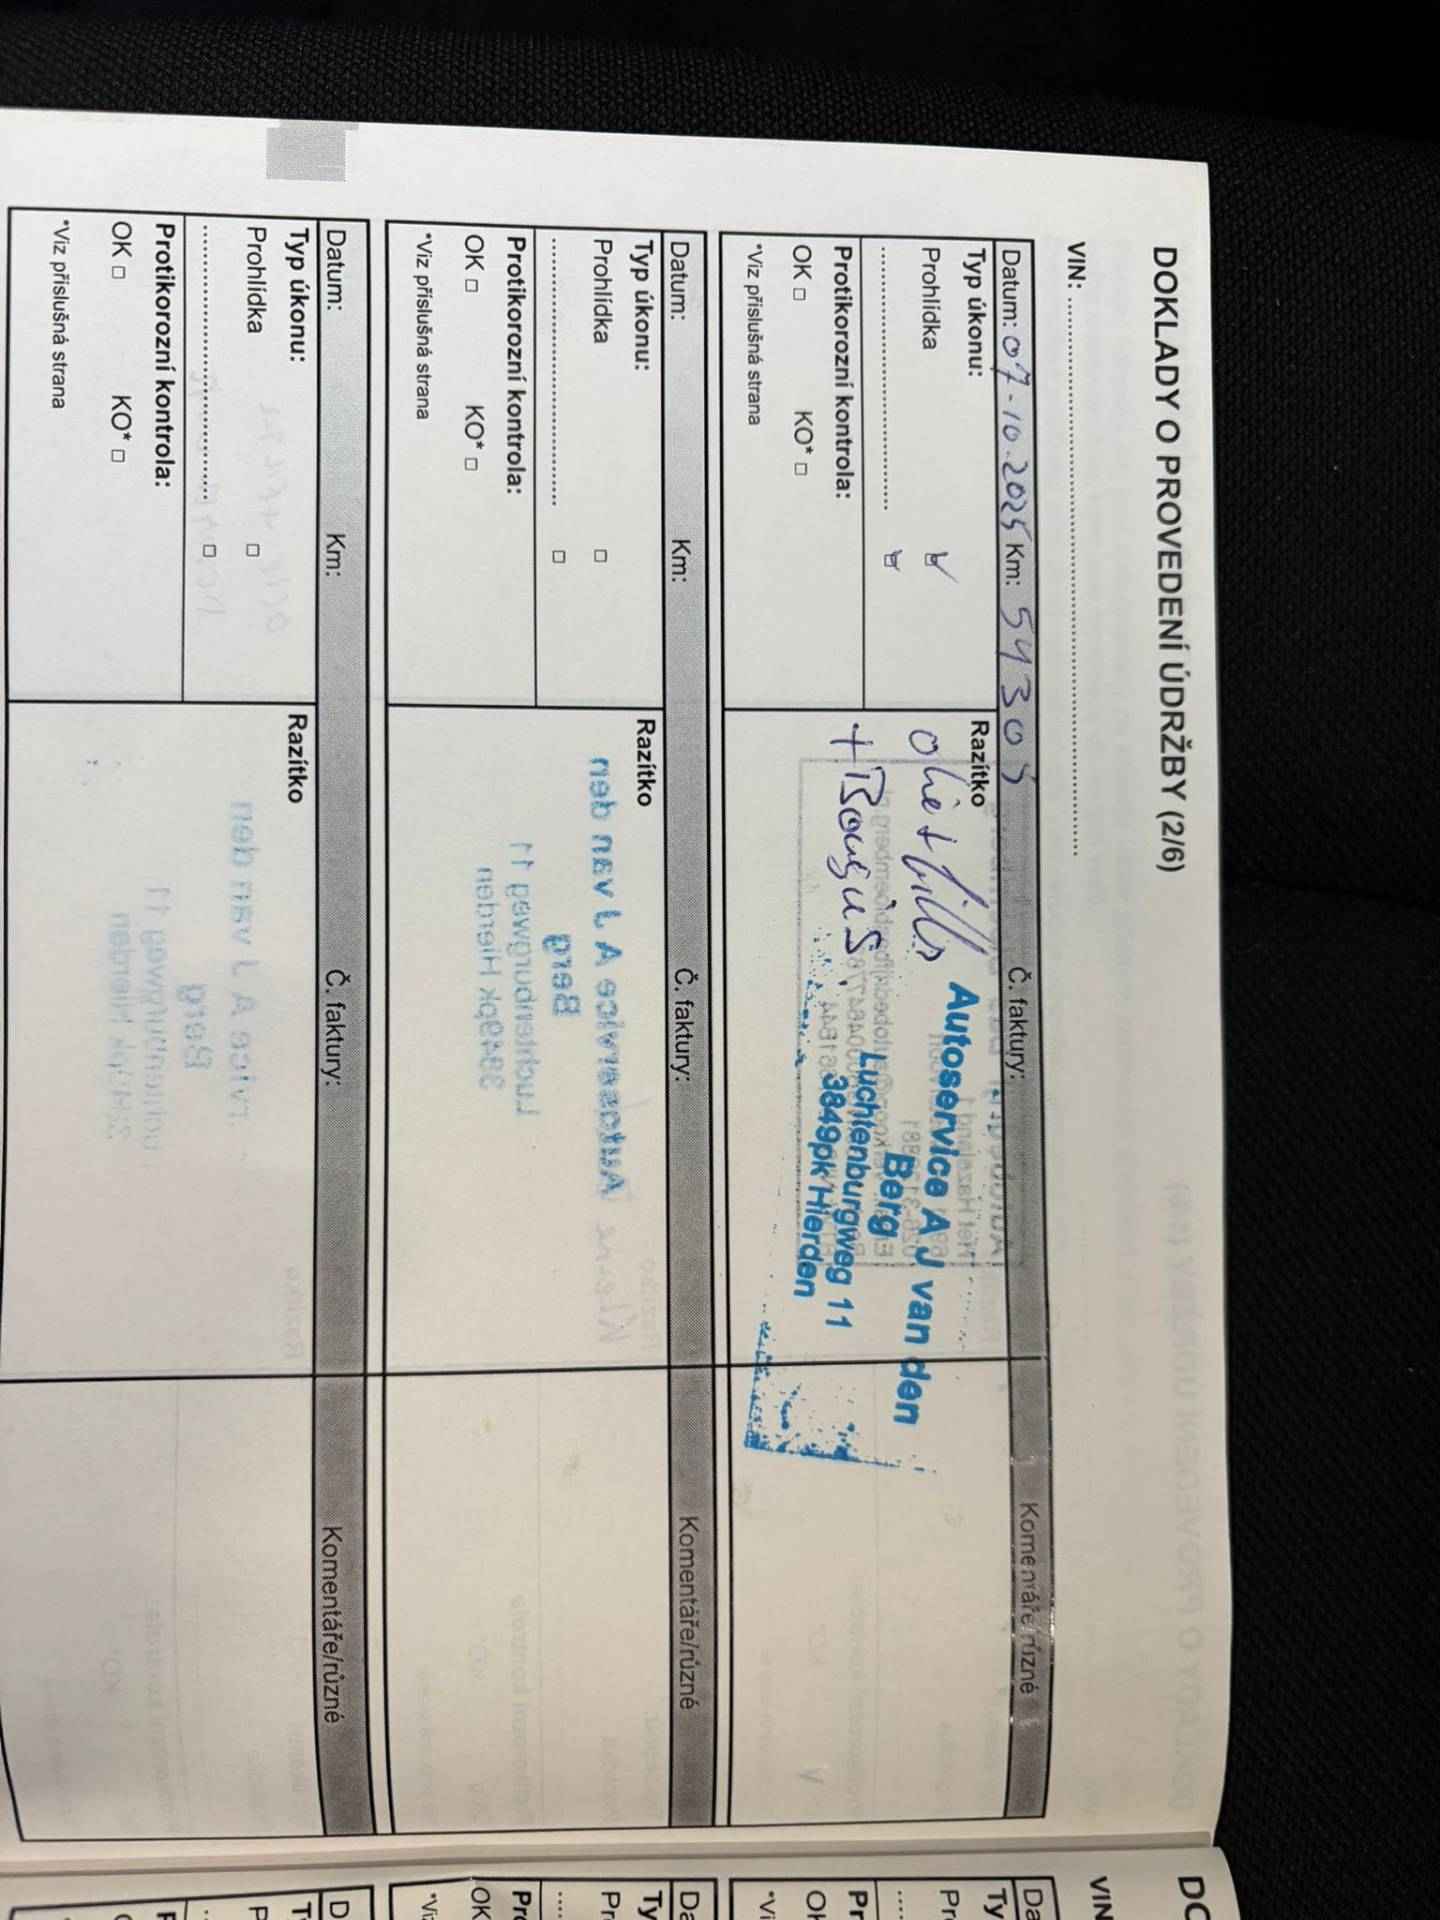 DOKLADY O PROVEDENÍ ÚDRŽBY (2/6)
VIN:
Datum: 07-10-2025 Km: 59305 Č. faktury: Komentáře/různé
Typ úkonu:
Prohlídka
Protikorozní kontrola:
OK □ KO* □
*Viz příslušná strana
Razítko
olie + filter
+ Bougies
Autoservice A J van den
Berg
Luchtenburgweg 11
3849pk Hierden
Datum: Km: Č. faktury: Komentáře/různé
Typ úkonu:
Prohlídka □
□
Protikorozní kontrola:
OK □ KO* □
*Viz příslušná strana
Razítko
Datum: Km: Č. faktury: Komentáře/různé
Typ úkonu:
Prohlídka □
□
Protikorozní kontrola:
OK □ KO* □
*Viz příslušná strana
Razítko
VIN